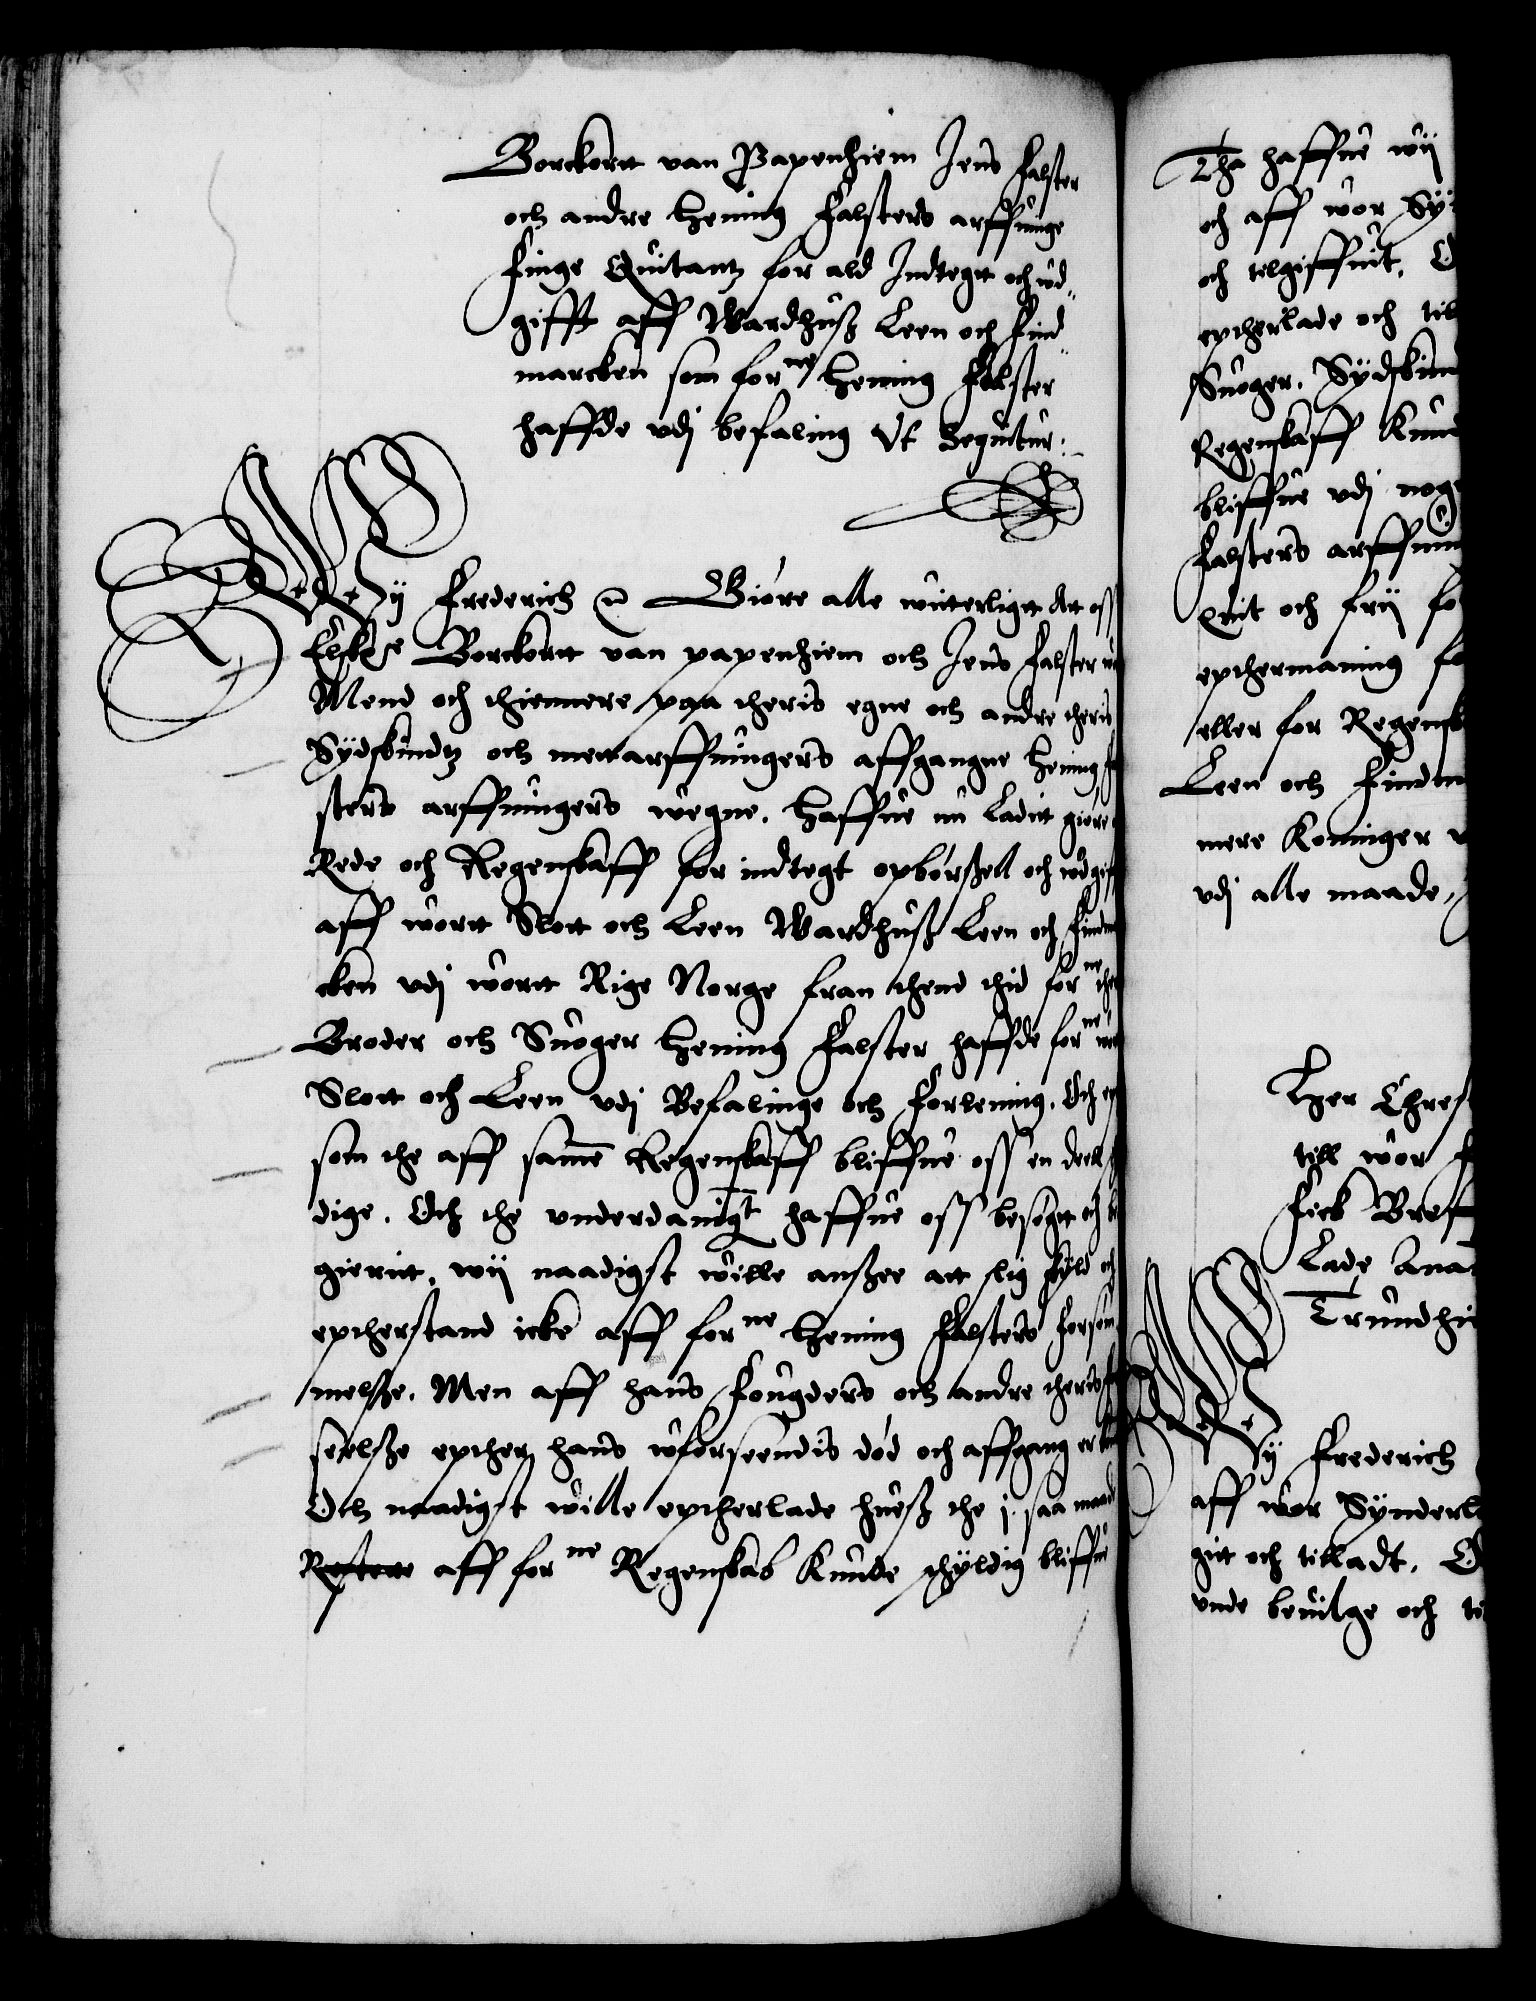 Borckortt van Papenhiem Jens Falster
och andre Hening Falsters arffuinge
Finge Quitantz for ald Indtegtt och ud„
gifft aff Wardhuß Leen och Find„
marcken som forne Hening Falster
haffde udj befaling Vt Sequitur:
Wij Frederich Giøre alle witterligtt Att oss
Elskelige Borckortt van papenhiem och Jens Falster
Mend och thiennere paa theris egne och andre theris
Sydskindtz och mettarffuingers affgangne Hening Fal
sters arffuingers wegne. Haffue nu Ladit giøre
Rede och Regenskaff for indtegt opbørßell och udgifft
aff wortt Slott och Leen Wardhuß Leen och Findmar
cken udj wortt Rige Norge fran thend thid forne
Broder och Suoger Hening Falster haffde forne
Slott och Leen udj Befalinge och Forlening. Och
som the aff samme Regenskaff bliffue oss en deell
dige. Och the underdanigt haffue oss besøgtt och be
gierit, wij naadigst wille anßee att slig skyld och
epetherstand icke aff forne Hening Falsters forsøm
melße. Men aff hans Fougders och andre theris
seelße epether hans uforseendis død och affgang er
Och naadigst wille epetherlade hueß the j saa maade
aff forne Regenskab Kunde skyldig bliffue
Tha haffue wij
och aff wor
och tilgiffuit.
epetherlade och till
Suoger. Sydskin
Regenskaff Kund
bliffue udj noge
Falsters arffuin
Quit och frij for
epethermaning
eller for Regensk
Leen och Findm
mere Koninger
udj alle maade
Her Christ
till wor
Fick Breff
Lade
Trundhi
Wij Frederich
aff wor Synderl
gitt och tilladt.
unde beuilge och